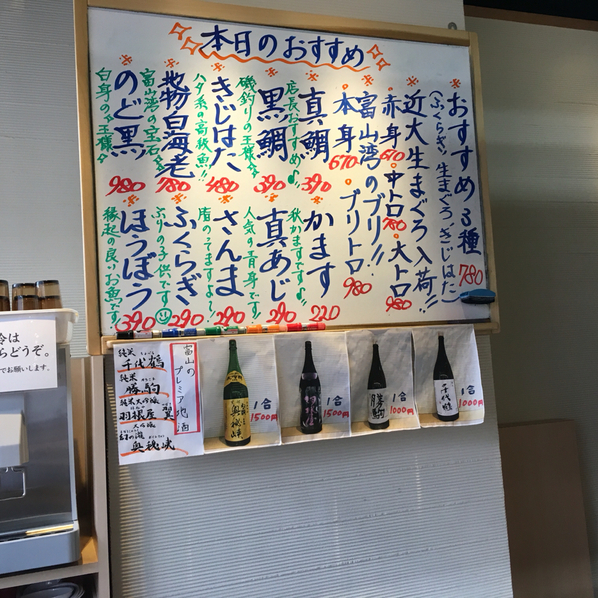 本日のおすすめ
おすすめ3種
(ふくらぎ、生まぐろ、きじはた)
780
近大生まぐろ入荷!!
赤身 670・中トロ 780・大トロ 980
富山湾のブリ!!
本身 670・ブリトロ 980
真鯛
店長おすすめ♪
390
黒鯛
磯釣りの王様☆
390
きじはた
ハタ系の高級魚!!
480
白海老
富山湾の宝石☆
980
のど黒
白身の王様☆
980
かます
秋かますです♪
220
真あじ
人気の青身です!
290
さんま
290
ふくらぎ
ぶりの子供です!
290
ほうぼう
縁起の良いお魚です!
390
富山のプレミア地酒
純米
千代鶴
純米
勝駒
純米大吟醸
羽根屋 翼
大吟醸
幻の酒
奥秘峡
奥秘峡
一合
1500円
一合
1500円
勝駒
一合
1000円
千代鶴
一合
1000円
らどうぞ。
でお願いします。